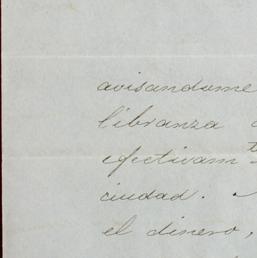 avisandome
libranza
efectivam^te
ciudad.
el dinero,